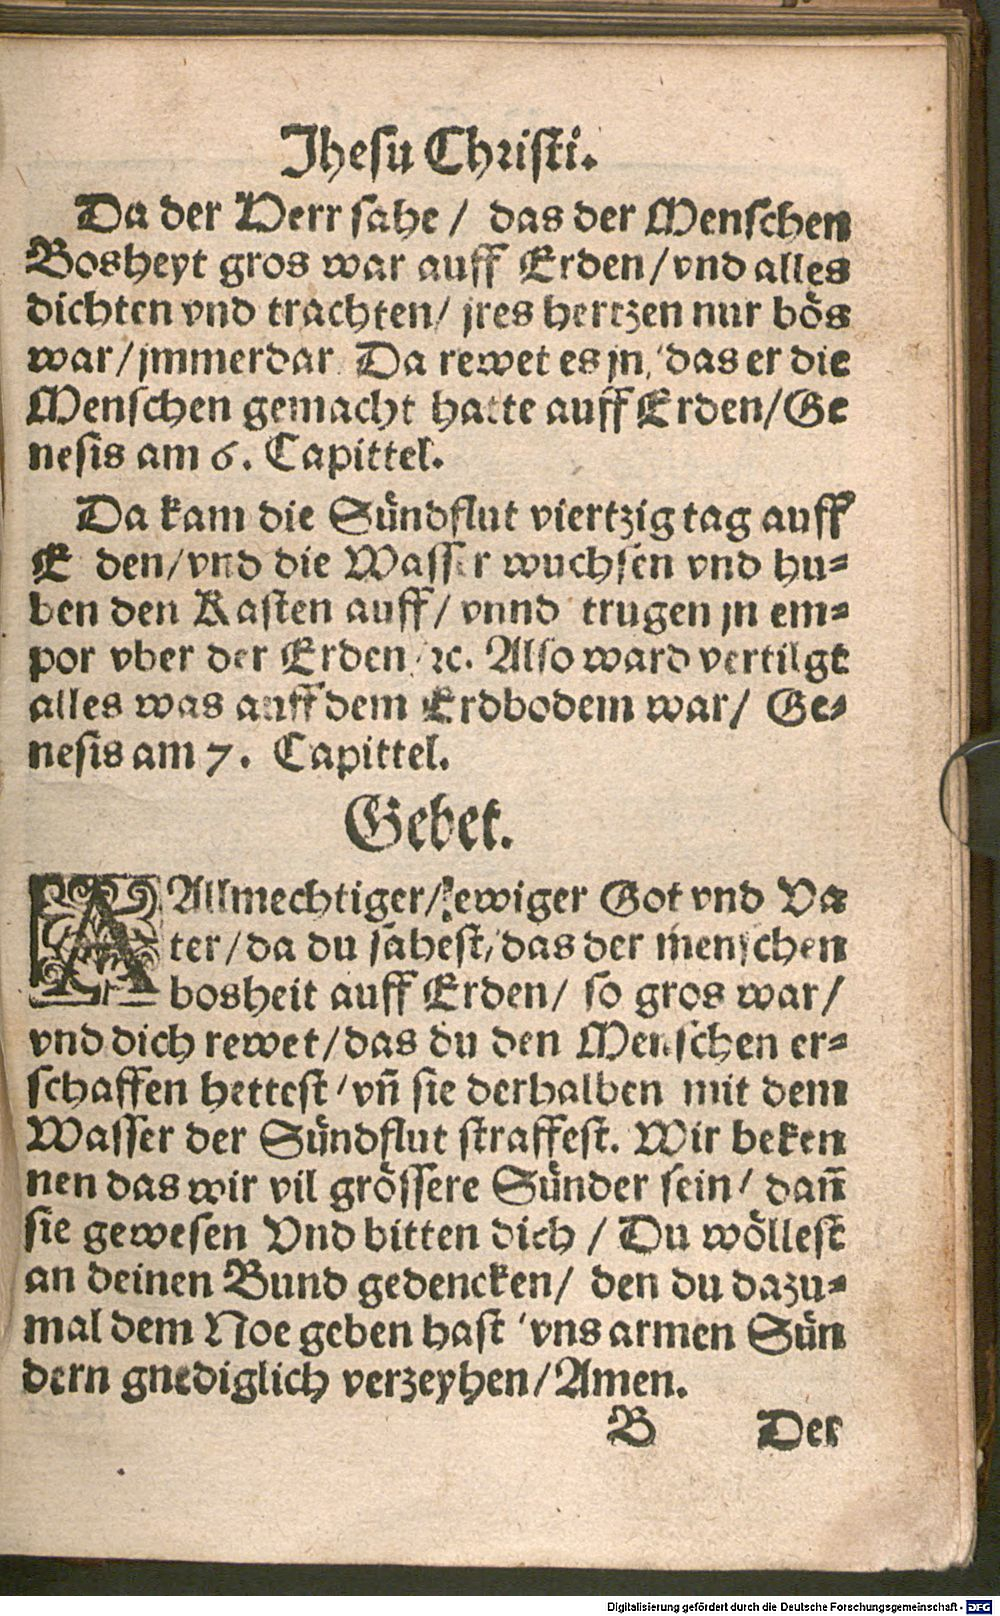 Jhesu Christi.
Da der Herr sahe / das der Menschen
Bosheyt gros war auff Erden/vnd alles
dichten vnd trachten/ jres hertzen nur bös
war/jmmerdar Da rewet es jn/ das er die
Menschen gemacht hatte auff Erden/Ge
nesis am 6. Capittel.
Da kam die Sündflut viertzig tag auff
E den/vnd die Wasser wuchsen vnd hu-
ben den Kasten auff/ vnnd trugen jn em-
por vber der Erden /ꝛc. Also ward vertilgt
alles was auff dem Erdbodem war/ Ge-
nesis am 7. Capittel.
Gebet.
AAllmechtiger/ ewiger Got vnd Va
ter/da du sahest/das der menschen
bosheit auff Erden/ so gros war/
vnd dich rewet/das du den Menschen er-
schaffen hettest/vñ sie derhalben mit dem
Wasser der Sündflut straffest. Wir beken
nen das wir vil grössere Sünder sein/ dañ
sie gewesen Vnd bitten dich / Du wöllest
an deinen Bund gedencken/ den du dazu-
mal dem Noe geben hast/vns armen Sün
dern gnediglich verzeyhen/Amen.
B Der
Digitalisierung gefördert durch die Deutsche Forschungsgemeinschaft - DFG